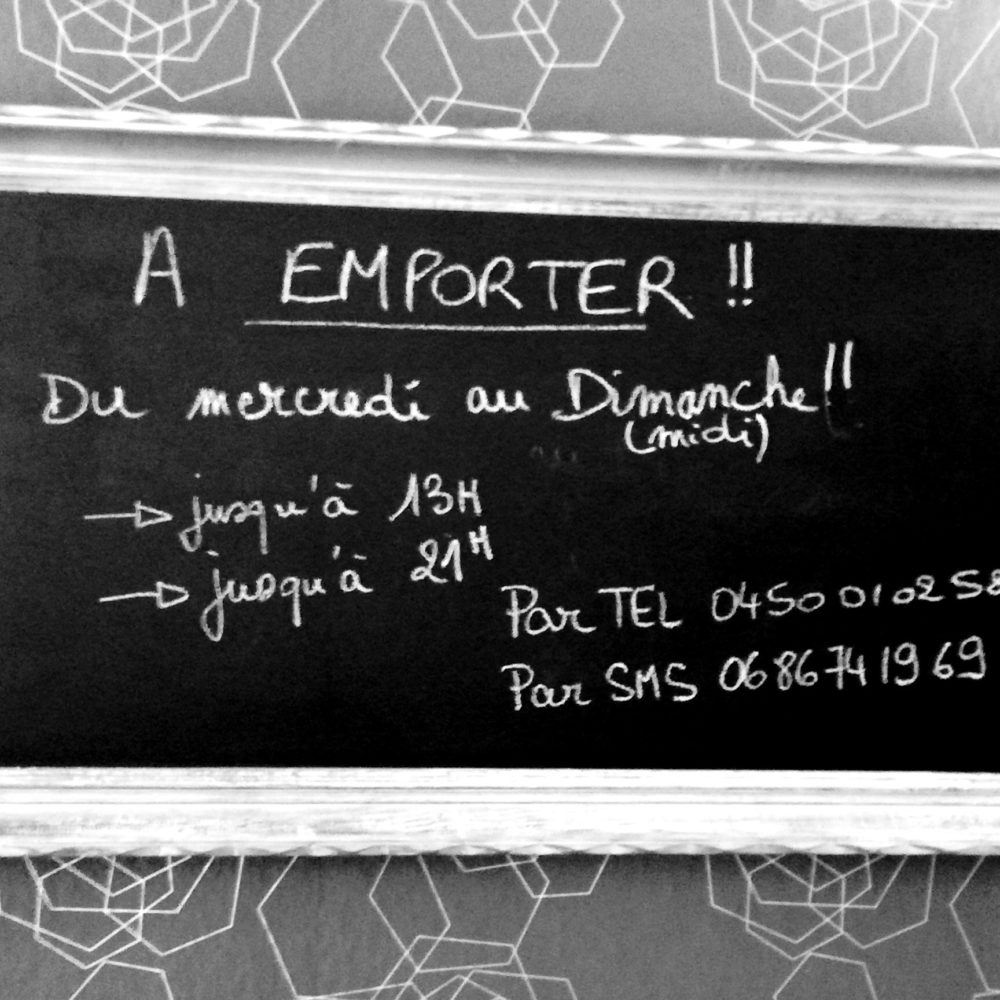 A EMPORTER !!
Du mercredi au Dimanche !!
(midi)
→ jusqu'à 13H
→ jusqu'à 21H
Par TEL 0450 01 02 58
Par SMS 06 86 74 19 69